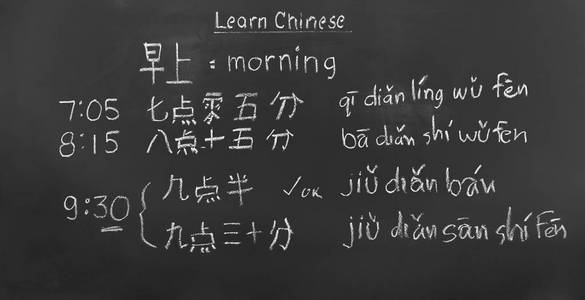 Learn Chinese
早上 : morning
7:05 七点零五分 qī diǎn líng wǔ fēn
8:15 八点十五分 bā diǎn shí wǔ fēn
9:30 九点半 ✓OK jiǔ diǎn bán
九点三十分 jiǔ diǎn sān shí fēn